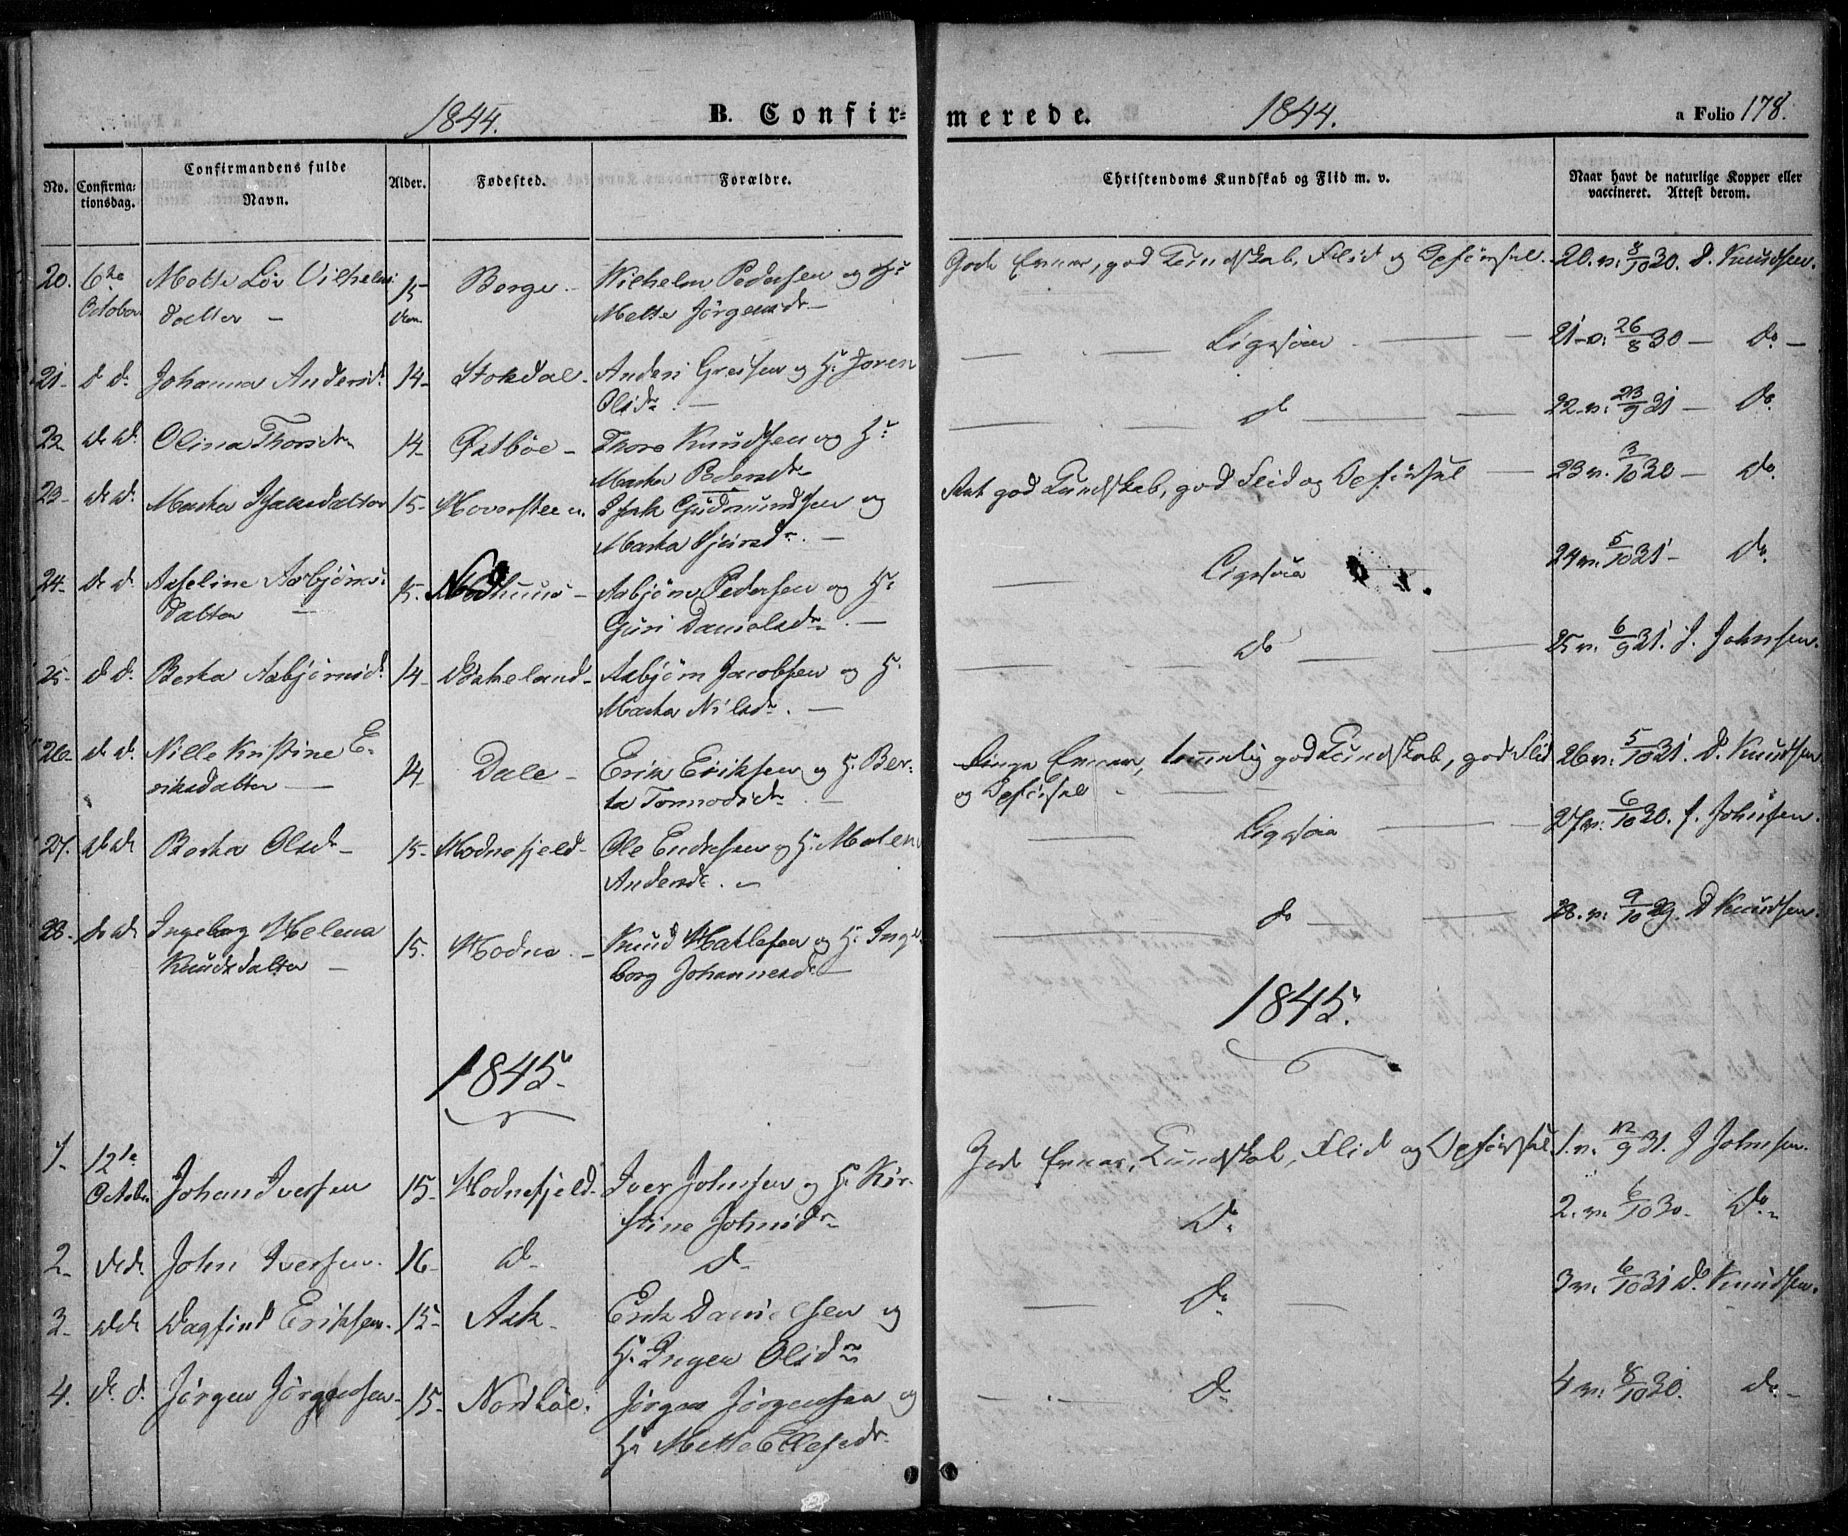 1844.
B. Confirmerede.
1844.
a Folio 178.
No.
Confirmationsdag.
Confirmandens fulde Navn.
Alder.
Fødested.
Forældre.
Christendoms Kundskab og Flid m. v.
Naar havt de naturlige Kopper eller vaccineret. Attest derom.
20. 6te October Mette Lov Vilhelmsdatter - 15 Berge - Wilhelm Pedersen og H: Mette Jørgensdr - Gode Evner, god Kundskab, Flid og Opførsel. 20. v. 8/10 30. D. Knudsen.
21- d d: Johanna Andersd: 14- Stokdal - Anders Greisen og H: Joren Olsdr. - Ligesaa 21-v. 26/8 30 - do -
22 d d: Olina Thorsdr 14- Østbøe - Thore Knudsen og H: Marta Pedersdr do 22-v. 23/9 31 - do.
23- d d: Marta Isaksdatter 15- Hoversteen. Isak Gudmundsen og Marta Sjursdr. - Ret god Kundskab, god Flid og Opførsel 23 v. 3/10 30 - do
24- d d. Asseline Asbjørnsdatter 15. Nodhuus - Asbjørn Pedersen og H: Guri Danielsdr. - Ligesaa 24 v. 5/10 31 - do
25- d d. Berta Asbjørnsd: 14- Bakeland - Asbjørn Jacobsen og H. Marta Nilsdr. - do 25 v. 6/9 31. J. Johnsen.
26- d d. Nille Kristine Eriksdatter - 14- Dale - Erik Eriksen og H: Berta Tormodsdr. - Ringe Evner, temmelig god Kundskab, god Flid og Opførsel 26 v. 5/10 31. D. Knudsen
27. d d Berta Olsdr - 15- Hodnefjeld - Ole Endresen og H. Malene Andersdr. - Ligesaa 27 v. 6/10 30. J. Johnsen.
28- d d. Ingeborg Helena Knudsdatter - 15. Hodne - Knud Hatlesen og H. Ingeborg Johannesdr - do 28. v. 9/10 29. D Knudsen.
1845.
1845.
1- 12te October Johan Iversen 15- Hodnefjeld - Iver Johnsen og H. Kirstine Johnsdr Gode Evner, Kundskab, Flid og Opførsel 1. v. 12/9 31. J Johnsen.
2- d d John Iversen. 16- d - d - do 2. v. 6/10 30 - do -
3- d d Dagfind Eriksen. 15- Ask - Erik Danielsen og H. Inger Olsdr do 3 v. 6/10 31 D. Knudsen.
4. d. d. Jørgen Jørgensen - 15- Nordbøe. Jørgen Jørgensen og H: Mette Ellefsdr do 4 v. 8/10 30. do -